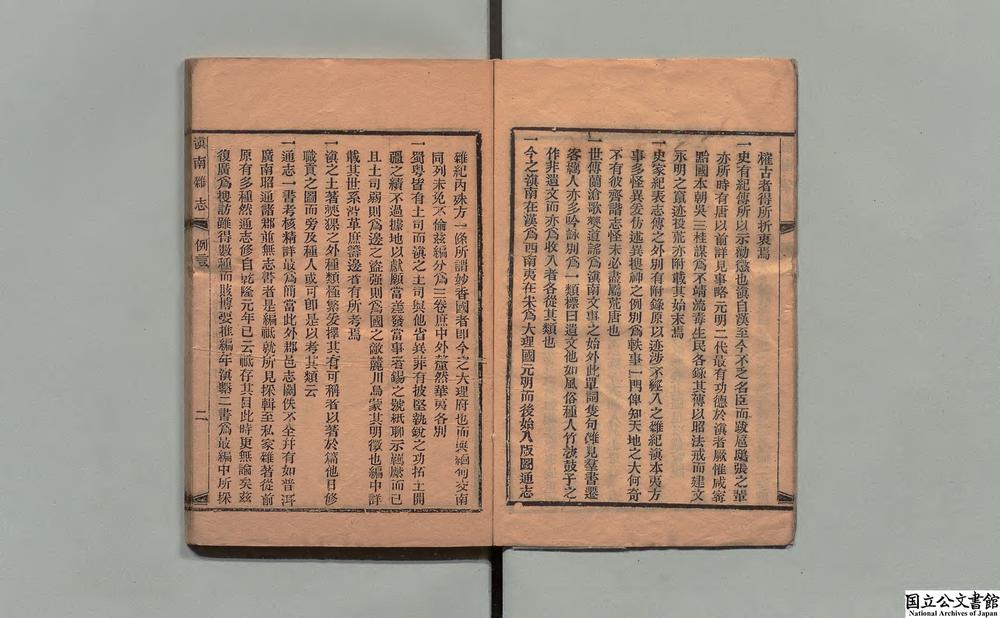 權古者得所折衷焉
一史有紀傳所以示勸懲也滇自漢至今不乏名臣而跋扈鴟張之輩
亦所時有唐以前詳見事略元明二代最有功德於滇者厥惟咸寧
黔國本朝吳三桂謀為不靖流毒生民各錄其傳以昭法戒而建文
永明之竄迹投荒亦附載其始末焉
一史家紀表志傳之外別有附錄原以迹涉不經入之雜紀滇本夷方
事多怪異爰仿述異搜神之例別為軼事一門俾知天地之大何奇
不有彼齊諧志怪未必盡屬荒唐也
一世傳蘭滄歌樊道謠為滇南文事之始外此單詞隻句雜見羣書遷
客羈人亦多吟詠別為一類標曰遺文他如風俗種人竹枝鼓子之
作非遺文而亦為收入者各從其類也
一今之滇南在漢為西南夷在宋為大理國元明而後始入版圖通志
雜紀內殊方一條所謂妙香國者即今之大理府也而與緬甸交南
同列未免不倫茲編分為三卷庶中外釐然華夷各別
一蜀粵皆有土司而滇之土司與他省異非有披堅執銳之功拓土開
疆之績不過據地以獻願當差發當事者錫之號紙聊示羈縻而已
且土司弱則為邊之盜強則為國之敵麓川烏蒙其明徵也編中詳
載其世系沿革庶籌邊者有所考焉
一滇之土著爨猓之外種類極繁爰擇其有可稱者以著於篇他日修
職貢之圖而旁及種人或可即是以考其類云
一通志一書考核精詳最為簡當此外郡邑志闕佚不全并有如普洱
廣南昭通諸郡並無志書者是編祗就所見採輯至私家雜著從前
原有多種然通志修自乾隆元年已云祗存其目此時更無論矣茲
復廣為搜訪雖得數種而賅博要推編年滇繫二書為最編中所採
滇南雜志
例言
二
国立公文書館
National Archives of Japan